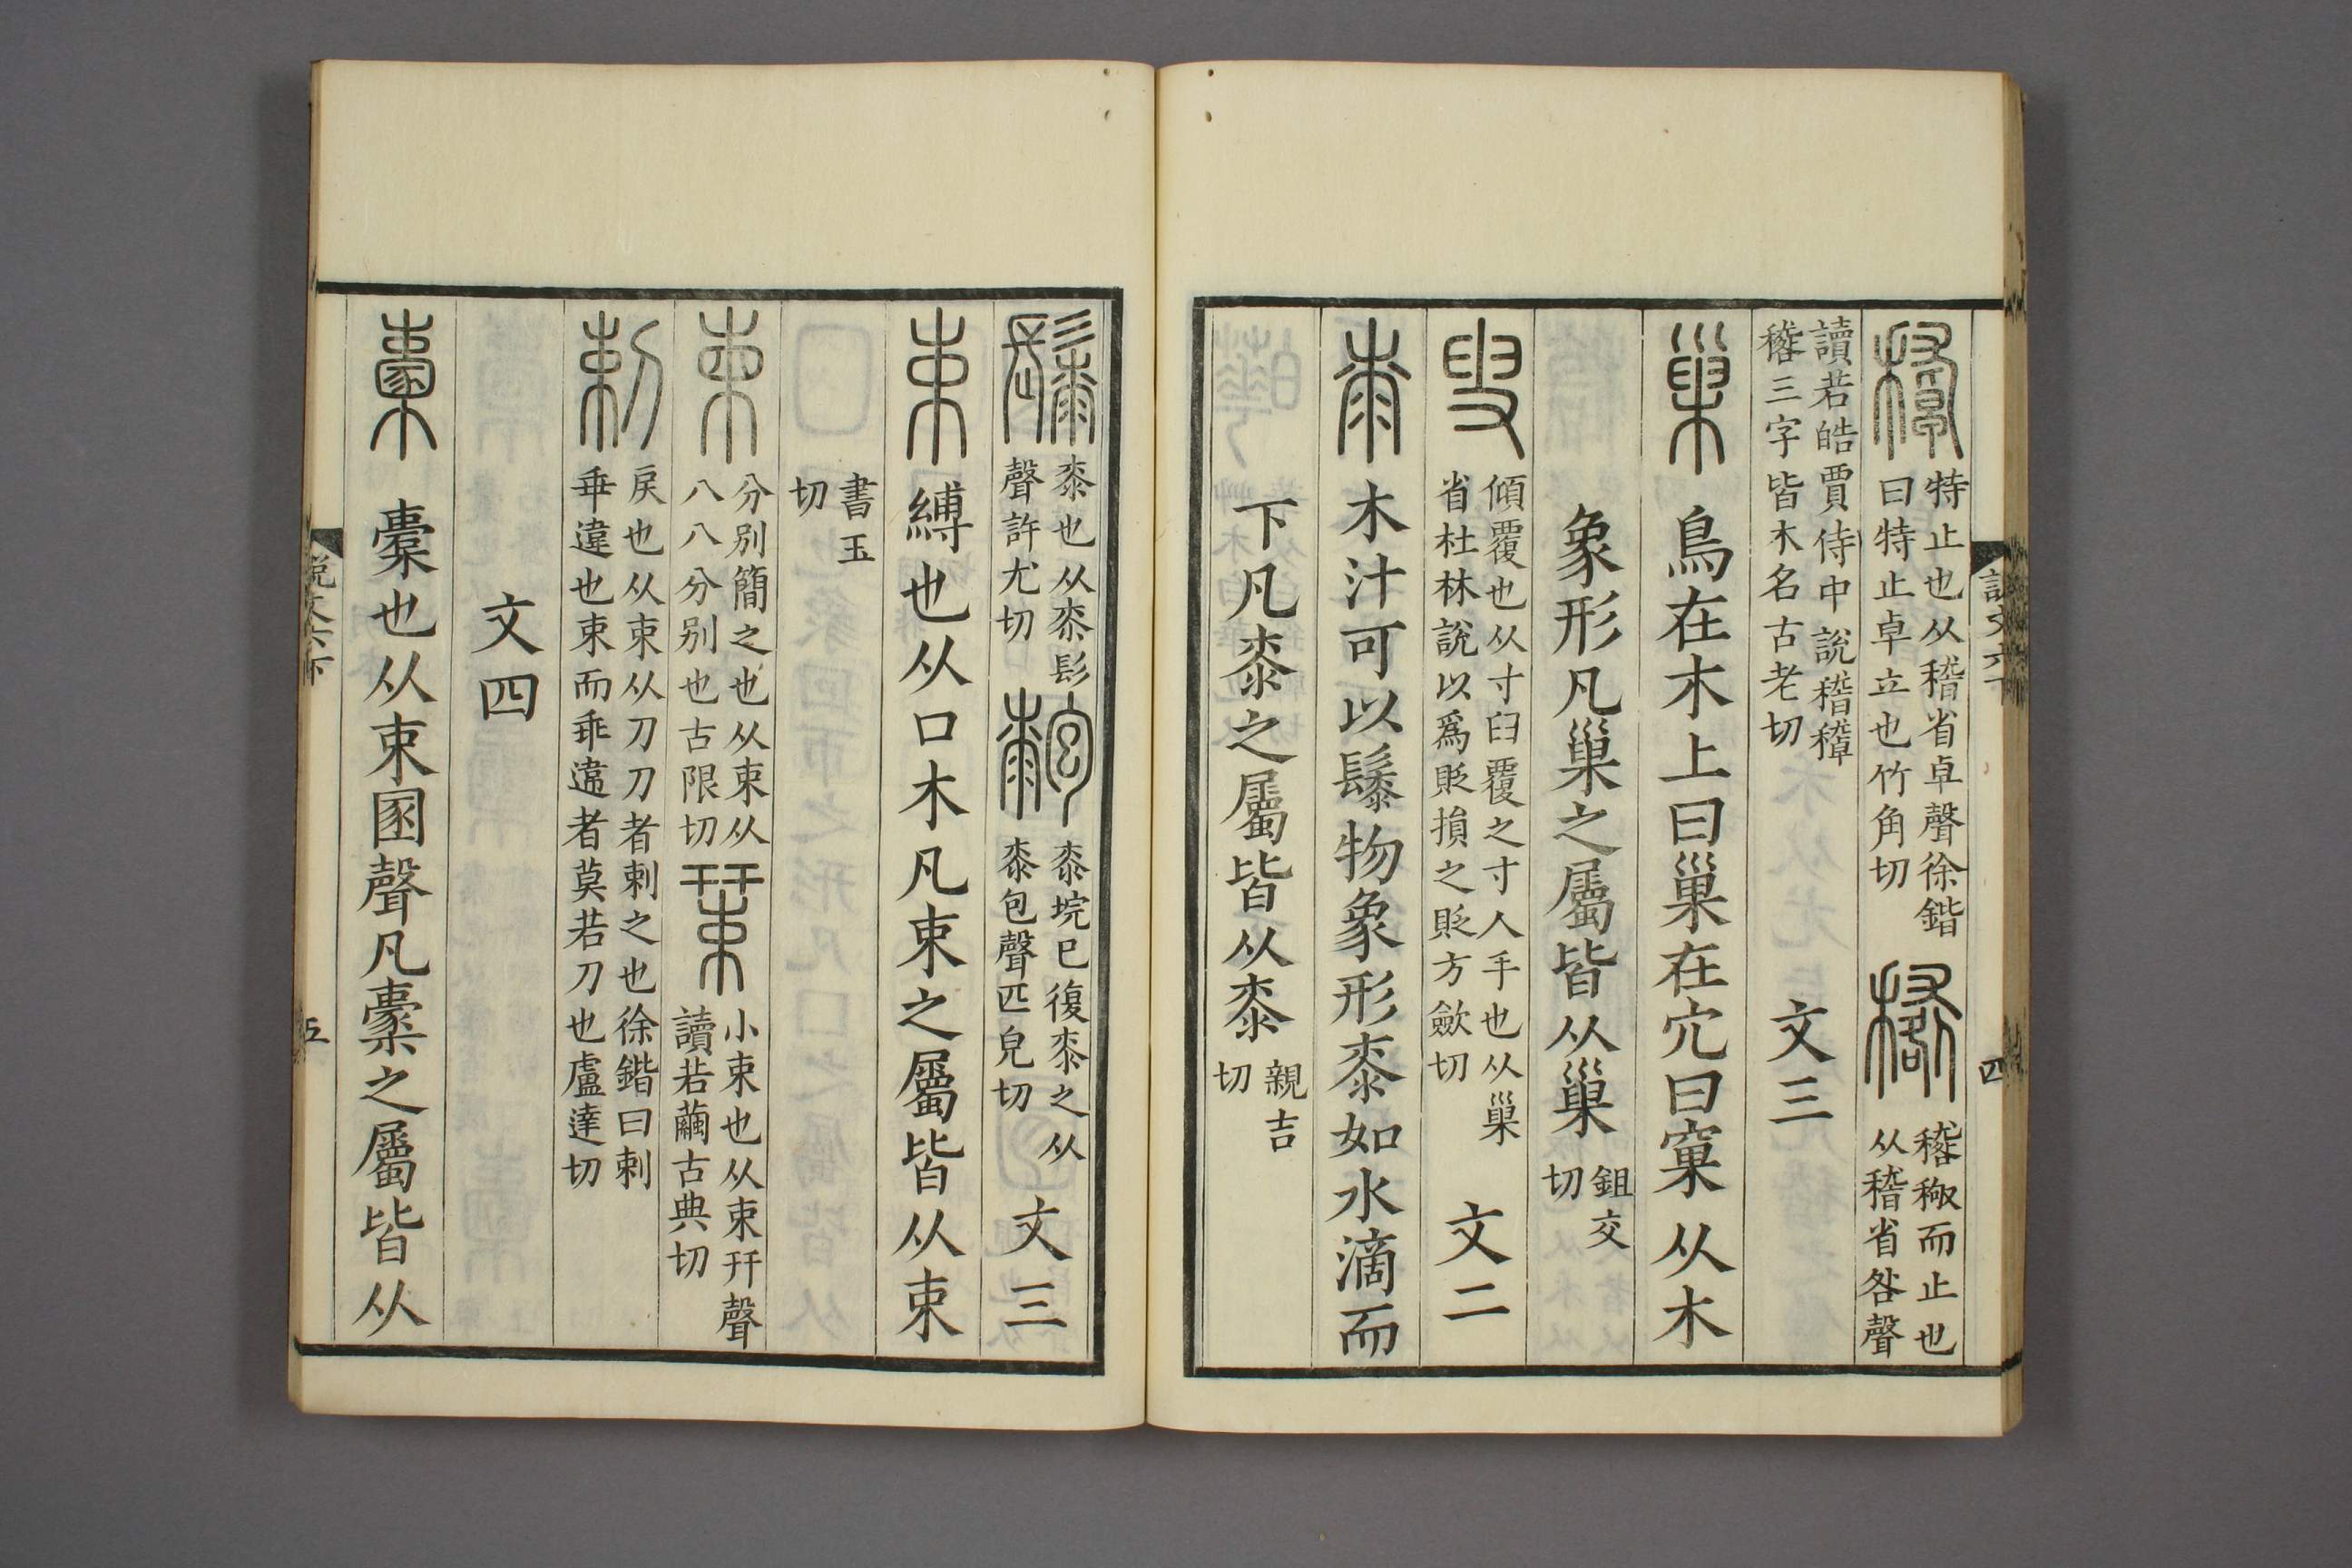 特止也从稽省卓聲徐鍇
曰特止卓立也竹角切
𥡴𥠻而止也
从稽省咎聲
讀若皓賈侍中說稽𥡴
𥢔三字皆木名古老切
文三
巢 鳥在木上曰巢在穴曰窠从木
象形凡巢之屬皆从巢
鉏交
切
傾覆也从寸臼覆之寸人手也从巢
省杜林說以爲貶損之貶方斂切
文二
桼 木汁可以䰍物象形桼如水滴而
下凡桼之屬皆从桼
親吉
切
說文六下
四
䰍 桼也从桼髟
聲許尤切
桼垸已復桼之从
桼包聲匹皃切
文三
束 縛也从口木凡束之屬皆从束
書玉
切
柬 分別簡之也从束从
八八分別也古限切
小束也从束幵聲
讀若繭古典切
剌 戾也从束从刀刀者剌之也徐鍇曰剌
乖違也束而乖違者莫若刀也盧達切
文四
㯻 橐也从束圂聲凡㯻之屬皆从
說文六下
五